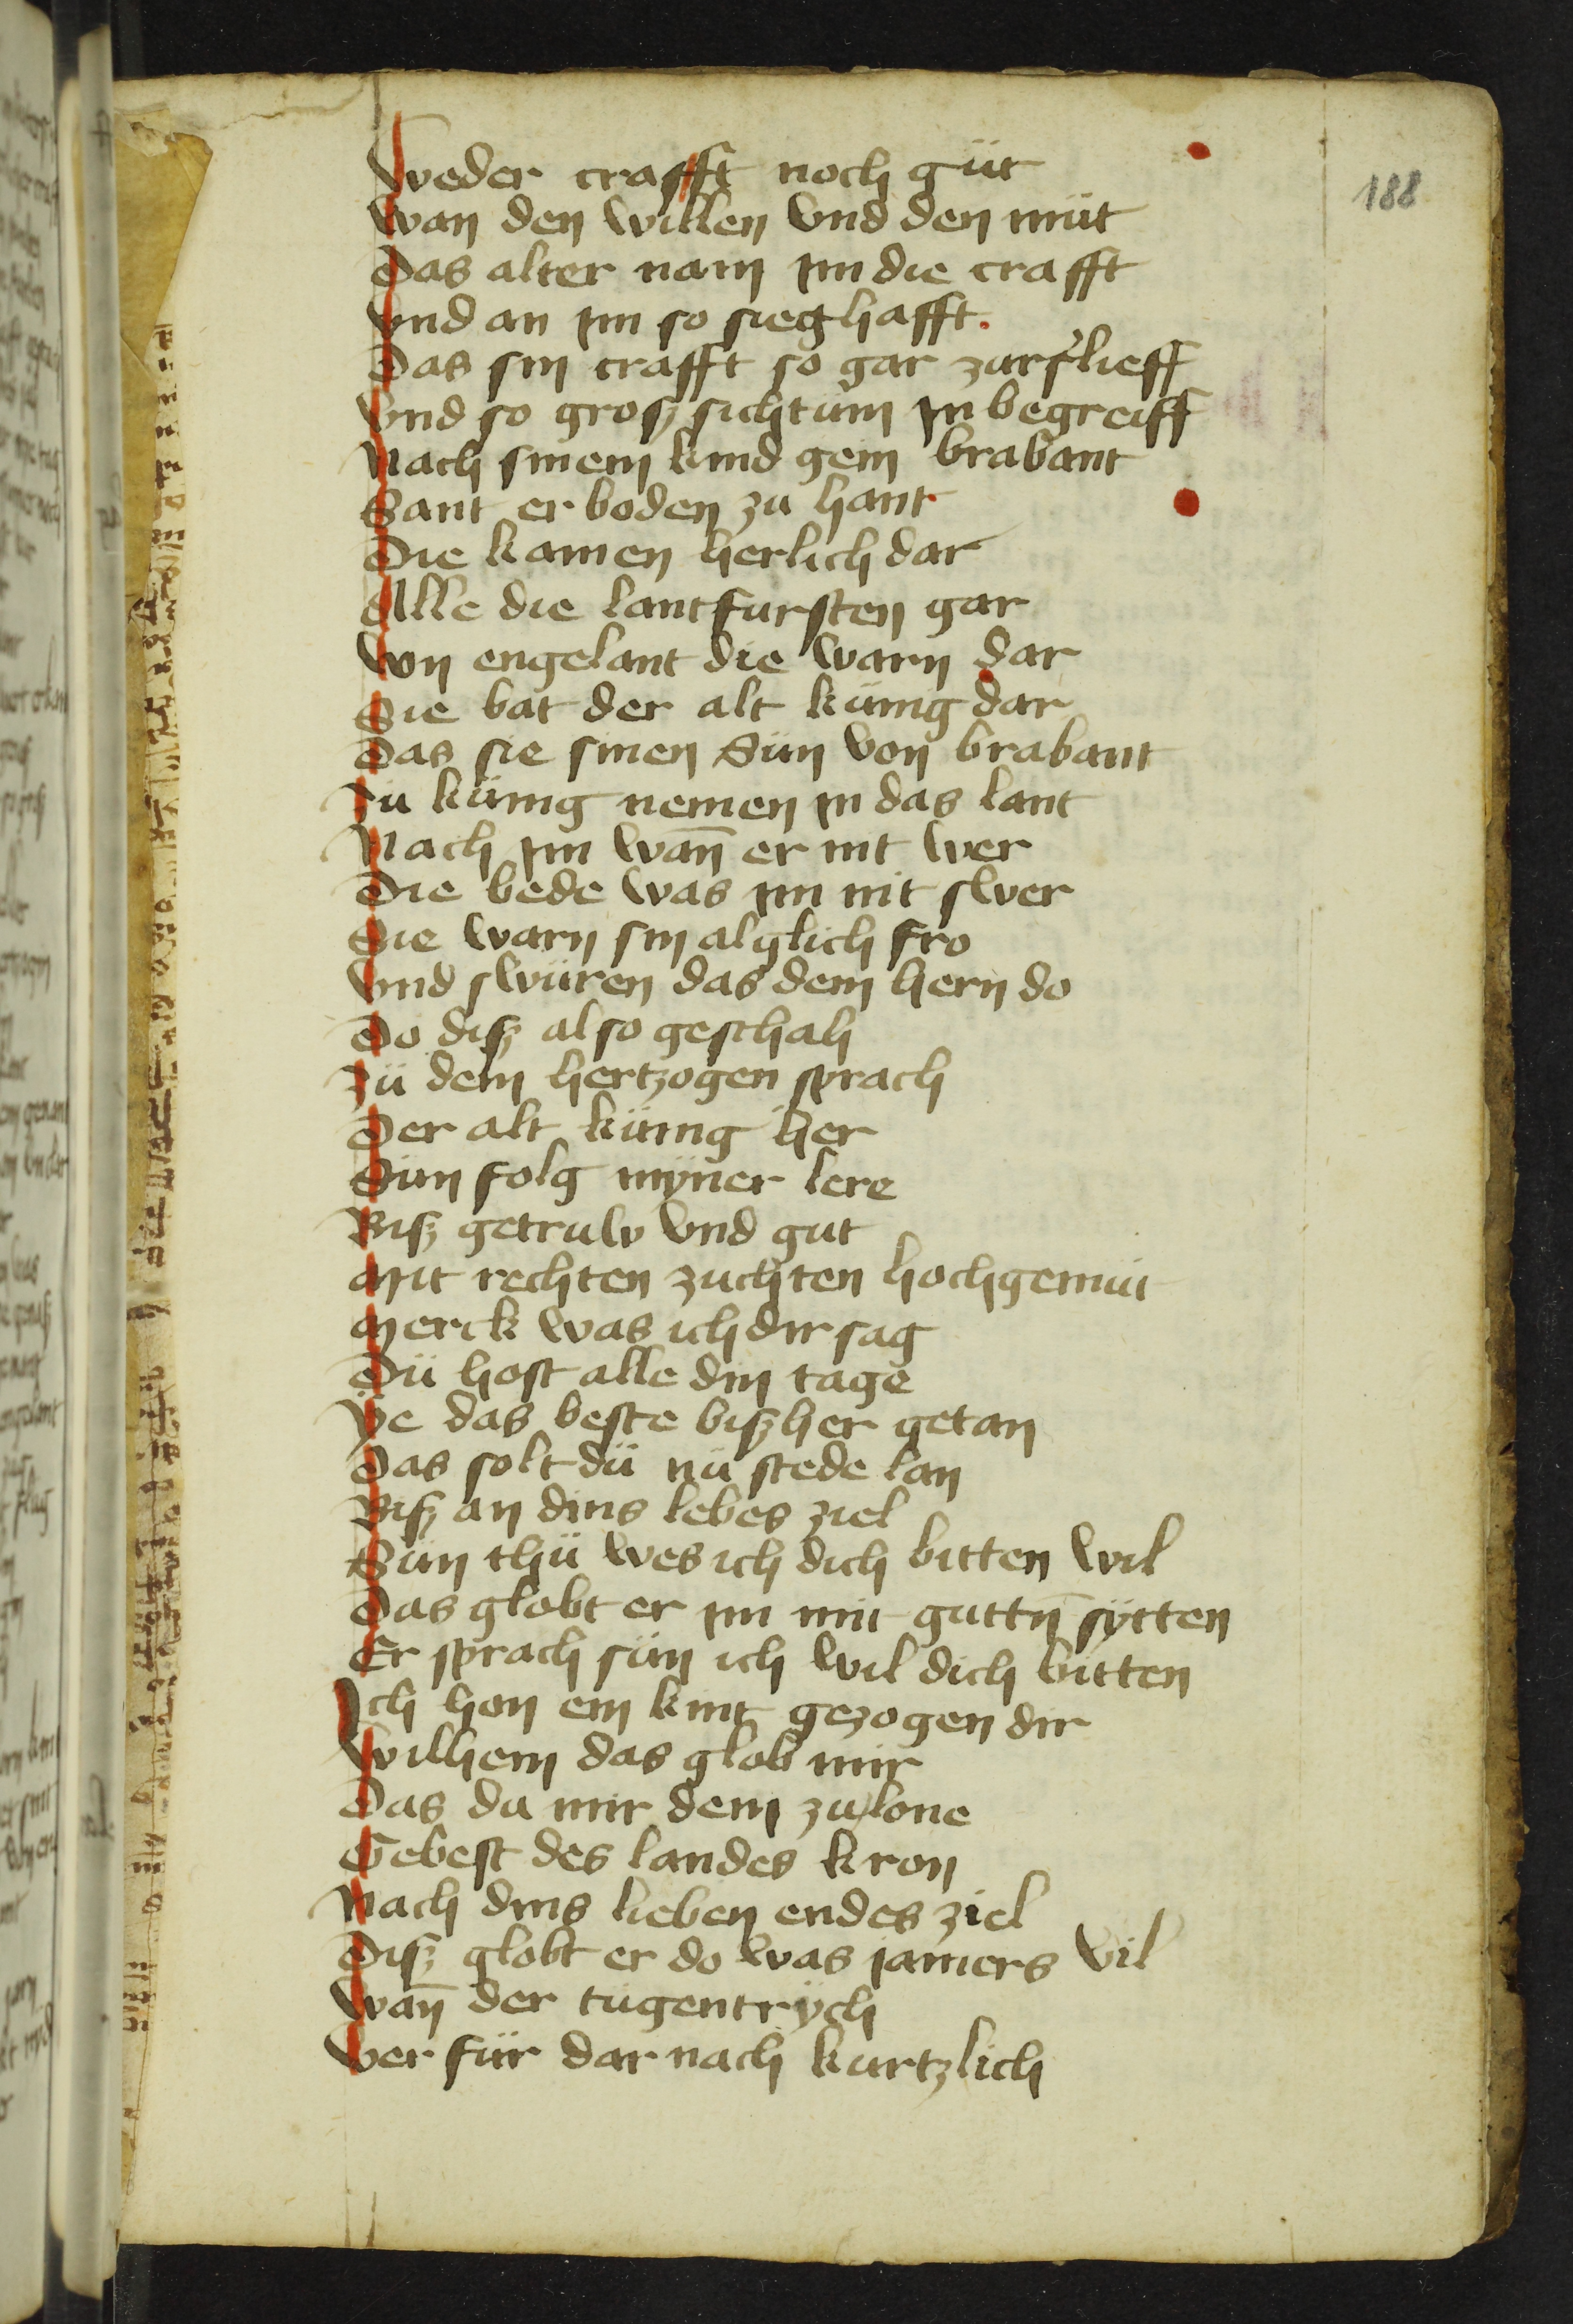 188
Weder crafft noch güt
Wan den willen vnd den müt
Das alter nam ym die crafft
Vnd an ym so sieghafft.
Das sin crafft so gar zurslieff
Vnd so grosz sichtum yn begreiff
Nach sinem kind gem brabant
Sant er boden zu hant
Die kamen herlich dar
Alle die lantfursten gar
Von engelant die warn dar
Sie bat der alt künig dar
Das sie sinen Sün von brabant
Zu künig nemen in das lant
Nach ym wan̄ er nit wer
Die bede was ym nit swer
Sie warn sin alglich fro
Vnd swüren das dem hern do
Do disz also geschah
Zü dem hertzogen sprach
Der alt künig her
Sün folg myner lere
Bisz getruw vnd gut
Mit rechten zuchten hochgemüt
Merck was ich dir sag
Dü host alle din tage
Ye das beste biszher getan
Das solt dü nü stede lan
Bisz an dins lebes ziel
Sün thü wes ich dich bitten wil
Das globt er ym mit guttn̄ sytten
Er sprach sün ich wil dich bitten
Ich hon ein kint gezogen dir
Wilhem das glob mir
Das du mir dem zu lone
Gebest des landes kron
Nach dins lieben endes ziel
Disz globt er do was iamers vil
Wan̄ der tügentrych
Ver für dar nach kurtzlich